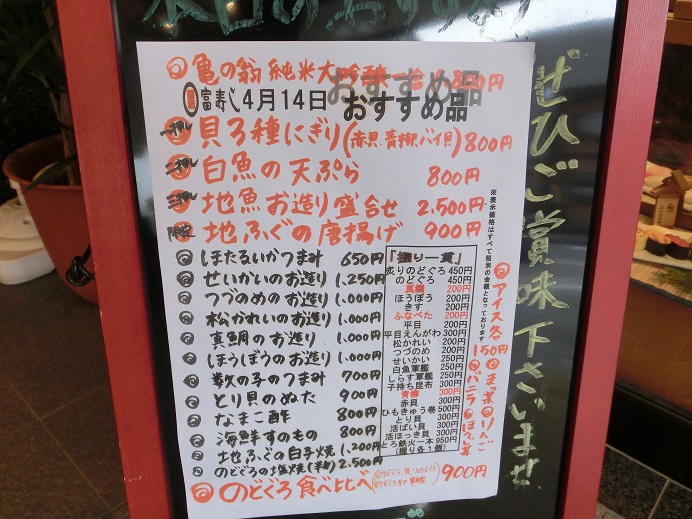 本日のおすすめ
亀の翁 純米大吟醸 一合 800円
富寿し 4月14日 おすすめ品
一押し 貝3種にぎり(赤貝、青柳、バイ貝) 800円
二押し 白魚の天ぷら 800円
三押し 地魚お造り盛合せ 2,500円
限定 地ふぐの唐揚げ 900円
ほたるいかつまみ 650円
せいかいのお造り 1,250円
つづのめのお造り 1,000円
松かれいのお造り 1,000円
真鯛のお造り 1,000円
ほうぼうのお造り 1,000円
数の子のつまみ 700円
とり貝のぬた 900円
なまこ酢 800円
海鮮すのもの 800円
地ふぐの白子焼 1,200円
のどぐろの塩焼(半身) 2,500円
のどぐろ 食べ比べ 900円
『握り一貫』
炙りのどぐろ 450円
のどぐろ 450円
真鯛 200円
ほうぼう 200円
きす 200円
ふなべた 200円
平目 200円
平目えんがわ 300円
松かれい 200円
つづのめ 200円
せいかい 250円
白魚軍艦 250円
しらす軍艦 250円
子持ち昆布 300円
青柳 300円
赤貝 300円
ひもきゅう巻 500円
とり貝 300円
活ばい貝 300円
活ほっき貝 300円
とろ鉄火一本 950円
(握り各1個)
※表示価格はすべて税別の金額となっております
アイス各150円
まっ茶
りんご
バニラ
ほうじ茶
ぜひご賞味下さいませ